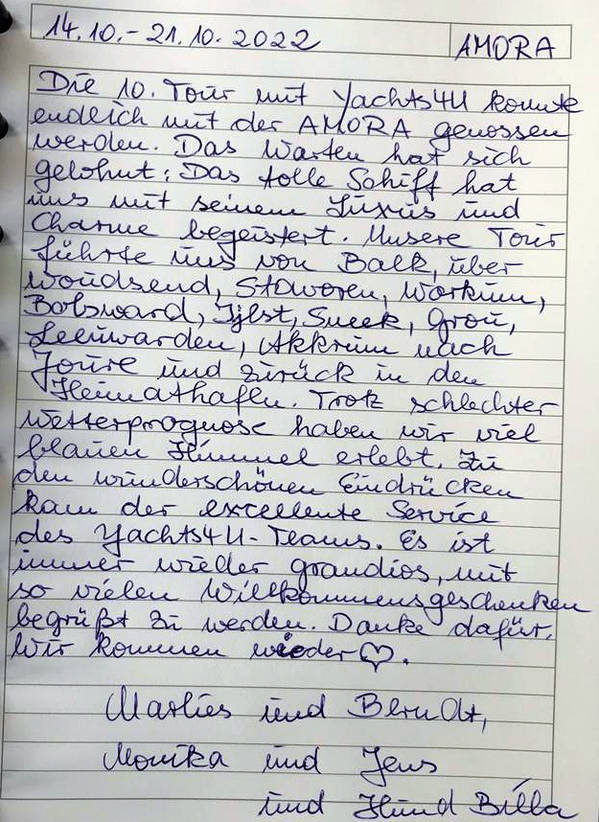 14.10.-21.10.2022
AMORA
Die 10. Tour mit Yachts4U konnte
endlich mit der AMORA genossen
werden. Das Warten hat sich
gelohnt: Das tolle Schiff hat
uns mit seinem Luxus und
Charme begeistert. Unsere Tour
führte uns von Balk, über
Woudsend, Stavoren, Workum,
Bolsward, Ijlst, Sneek, Grou,
Leeuwarden, Akkrum nach
Joure und zurück in den
Heimathafen. Trotz schlechter
Wetterprognose haben wir viel
blauen Himmel erlebt. Zu
den wunderschönen Eindrücken
kam der excellente Service
des Yachts4U-Teams. Es ist
immer wieder grandios, mit
so vielen Willkommensgeschenken
begrüßt zu werden. Danke dafür.
Wir kommen wieder ♡.
Marlies und Berndt,
Monika und Jens
und Hund Bilba